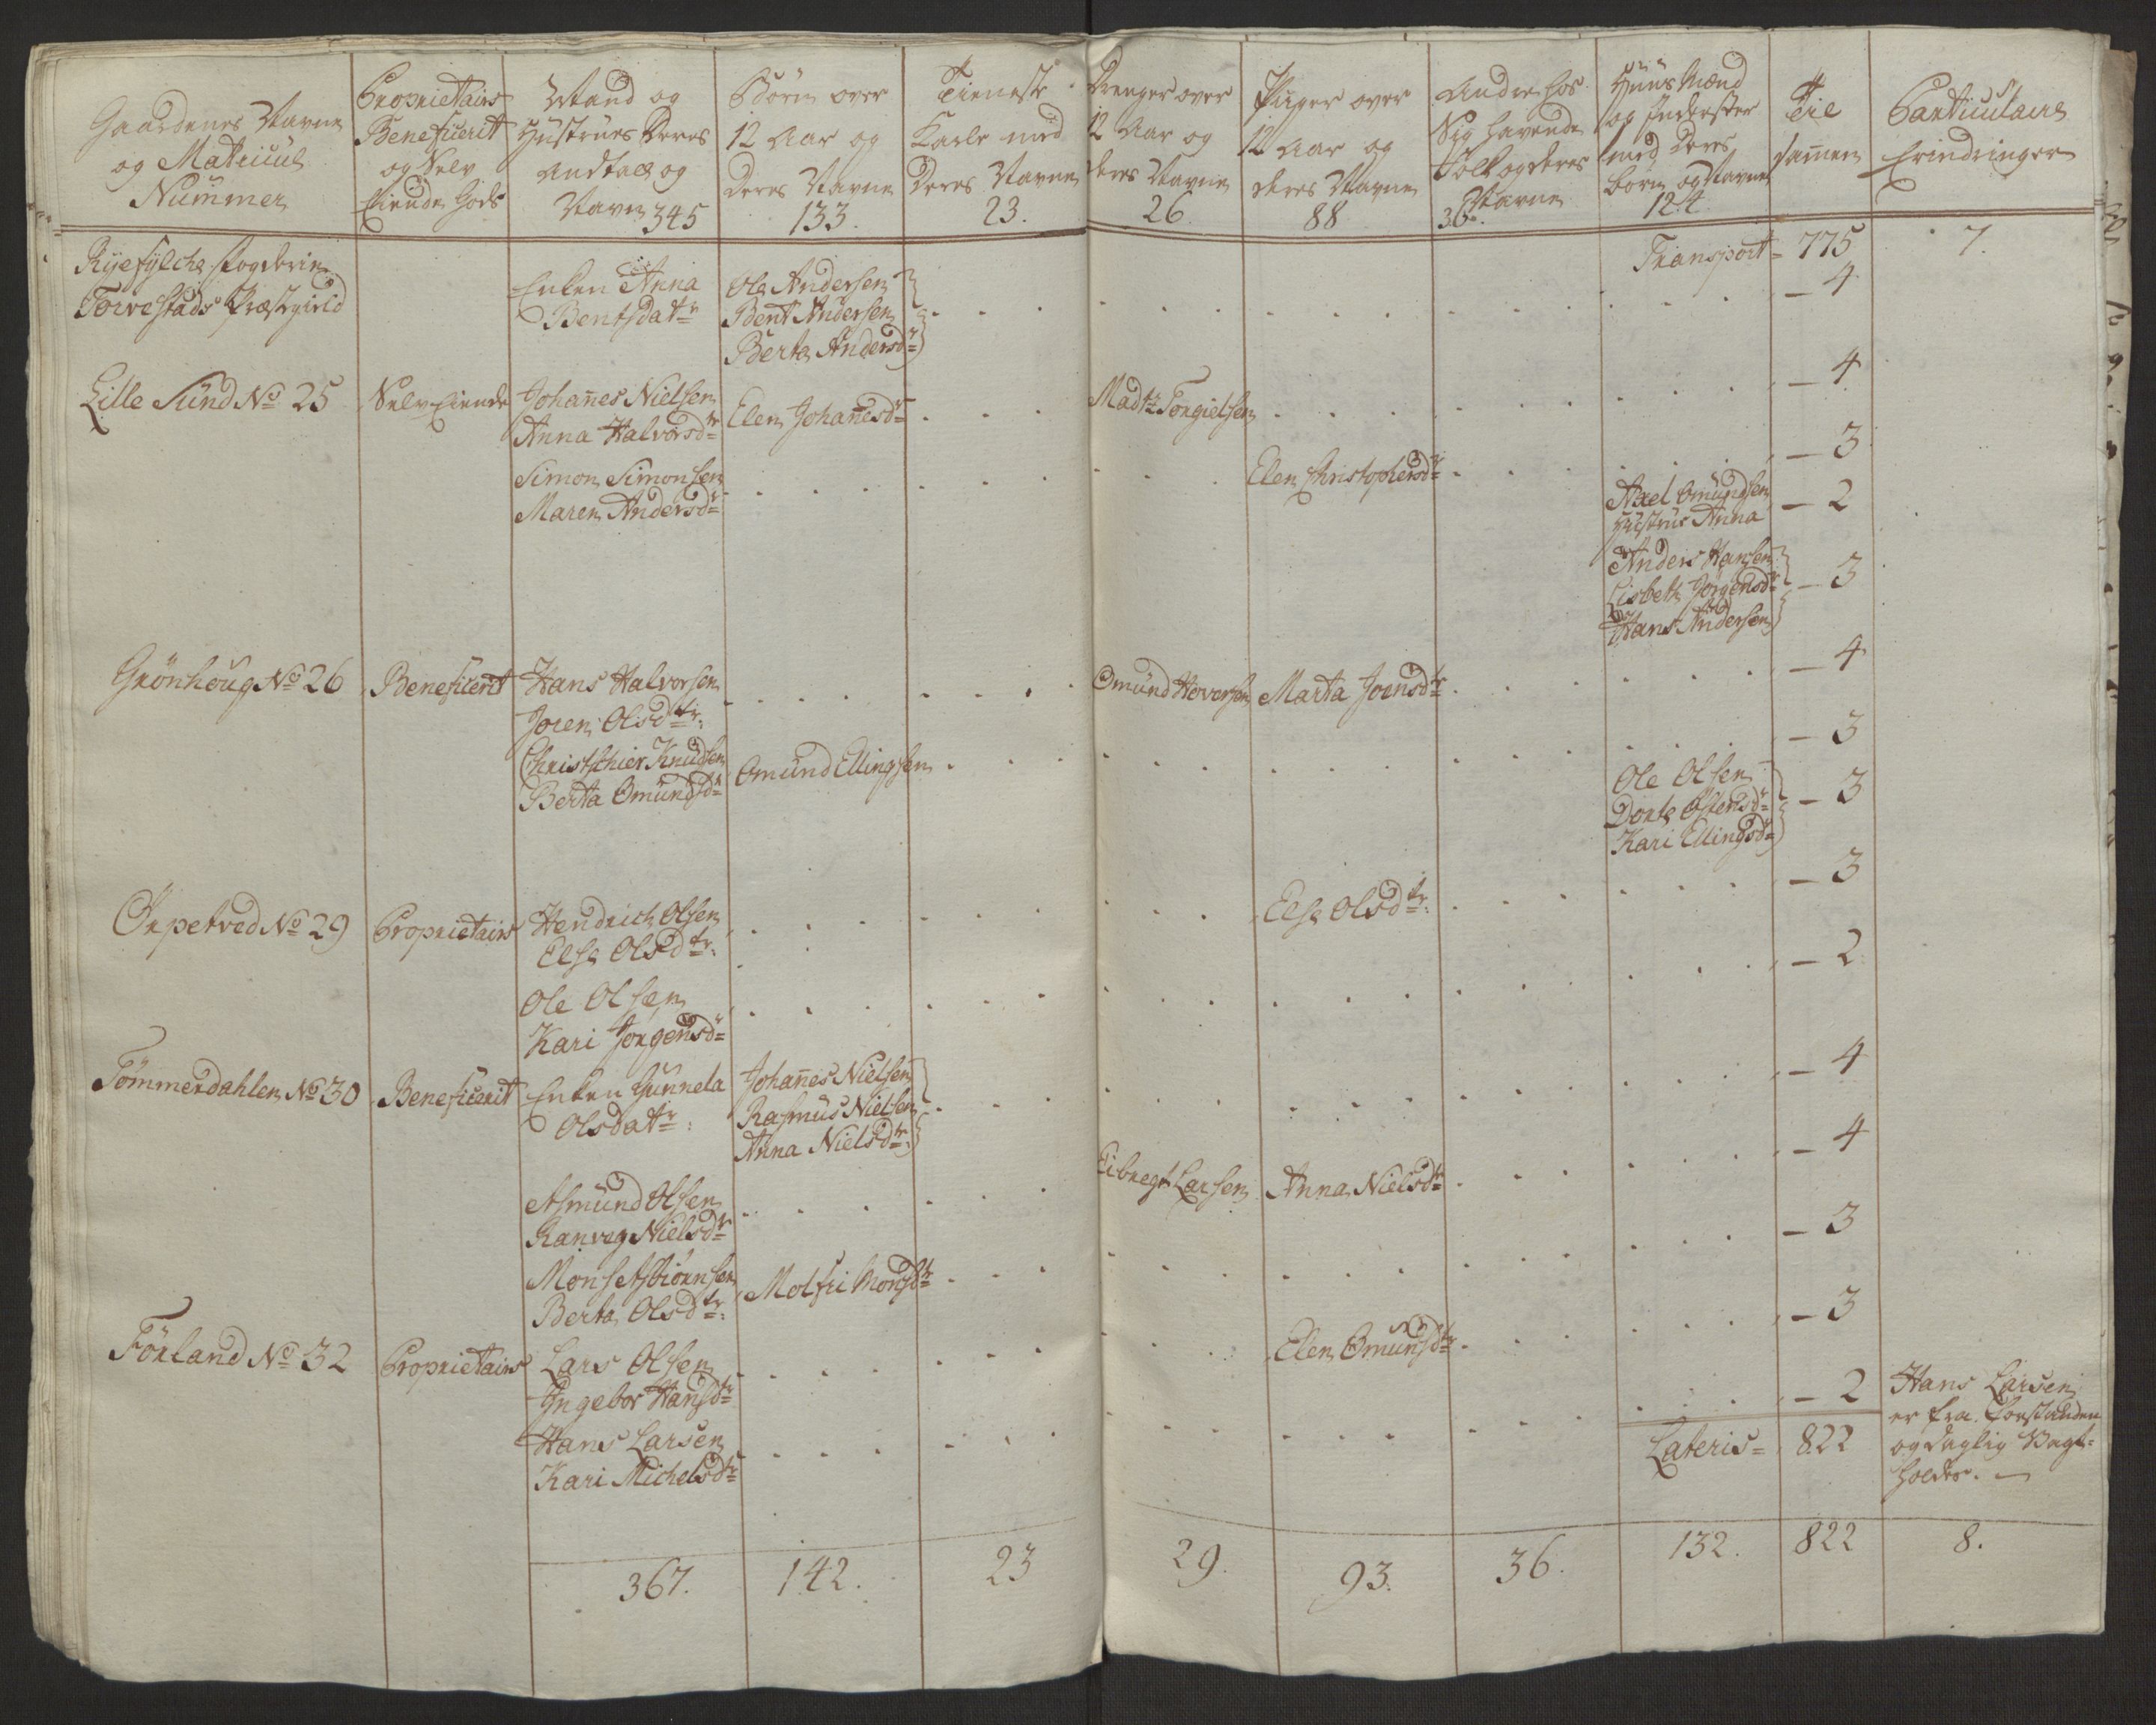 Gaardenes Navne
og Matricul
Nummer
Proprietairs
Beneficerit
og Selv
Eiende Gods
Mand og
Hüstrües Deres
Andtall og
Navn 345
Börn over
12 Aar og
Deres Navne
133.
Tieneste
Karle med
Deres Navne
23.
Drenger over
12 Aar og
deres Navne
26
Piiger over
12 Aar og
deres Navne
88
Andre hos
Sig havende
Folk og deres
Navne
36.
Hüüs Mænd
og Inderster
med deres
börn og Navne
124
Til
samen
Particulaire
Erindringer
Ryefylche fogderie
Torvestads Præstgield
Enken Anna
Bentsdatr
Ole Andersen
Bent Andersen
Berta Andersdr
Transport = 775
7.
4
Lille Sünd No 25
Selv Eiende
Johañes Nielsen
Anna Halvorsdtr
Elen Johañesdr
Mads Torgielsen
4
Simon Simonsen
Maren Andersdr
Elen Christophersdr
3
Axel Omundsen
Hüstrüe Anna
2
Anders Hansen
Lisbeth Jörgensdr
Hans Andersen
3
Grönhoug No 26
Beneficerit
Hans Halvorsen
Joren Olsdtr:
Omünd Hoversen
Marta Joensdtr
4
Christthier Knudsen
Berta Omündsdr
Omünd Ellingsen
3
Ole Olsen
Dorte Ostensdr
Kari Ellingsdr
3
Örpetved No 29
Proprietairs
Hendrich Olsen
Else Olsdtr:
Else Olsdtr:
3
Ole Olsen
Kari Jörgensdr
2
Tömmerdahlen No 30
Beneficerit
Enken Gunnela
Olsdatr:
Johañes Nielsen
Rasmüs Nielsen
Anna Nielsdtr:
4
Asmünd Olsen
Ranveg Nielsdtr
Eibregt Larsen
Anna Nielsdtr
4
Mons Asbiörnsen
Berta Olsdtr:
Molfri Monsdtr
3
Förland No 32
Proprietairs
Lars Olsen
Ingebor Hansdtr
Elen Omünsdtr
3
Hans Larsen
Kari Michelsdtr
2
Hans Larsen
er fra forstanden
og daglig Vagt-
holdes.
Lateris = 822
367.
142.
23
29.
93.
36.
132.
822
8.